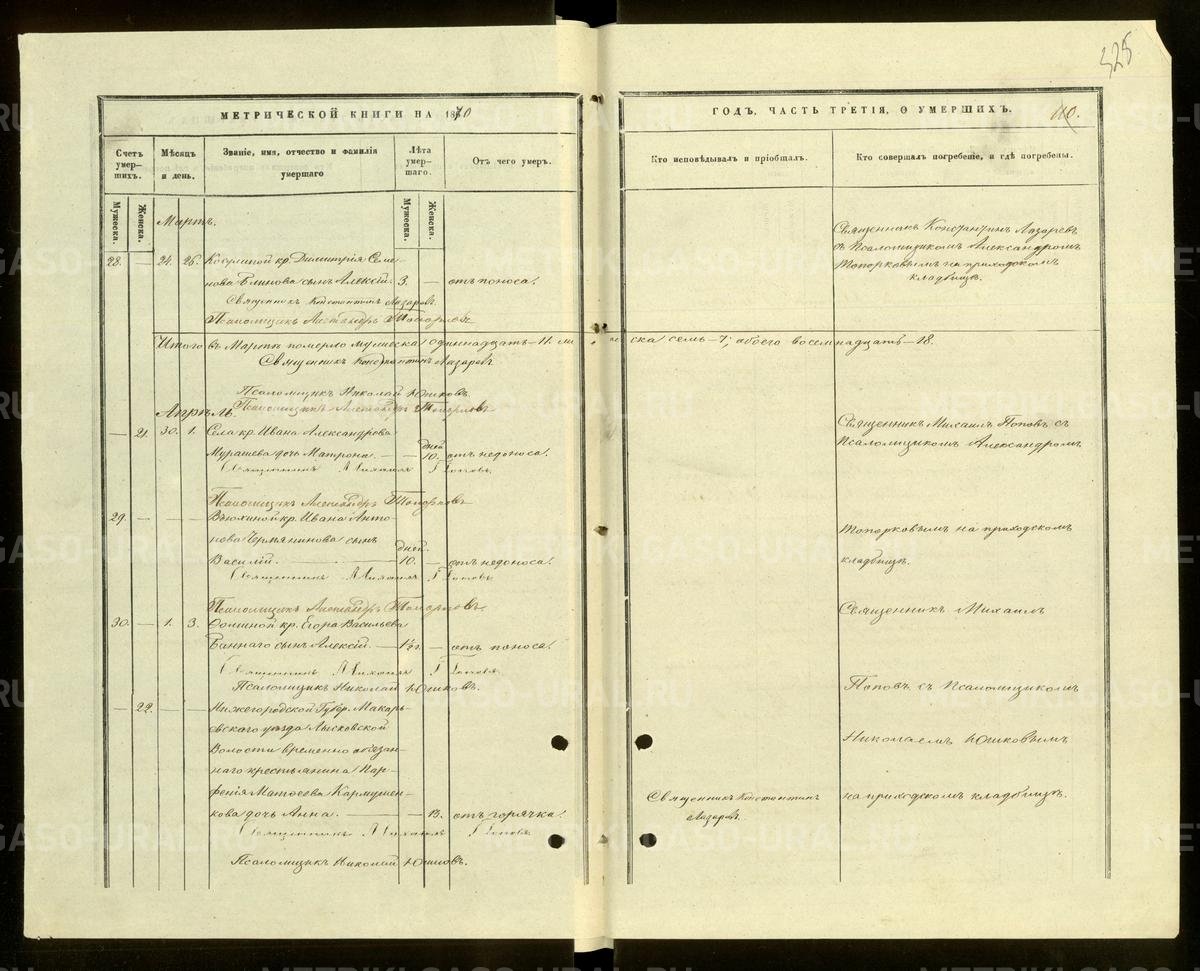 325
МЕТРИЧЕСКОЙ КНИГИ НА 1870
ГОДЪ, ЧАСТЬ ТРЕТІЯ, О УМЕРШИХЪ.
110.
Счетъ умер-шихъ.
Мѣсяцъ и день.
Званіе, имя, отчество и фамилія умершаго
Лѣта умер-шаго.
Отъ чего умеръ.
Кто исповѣдывалъ и пріобщалъ.
Кто совершалъ погребеніе, и гдѣ погребены.
Мужеска.
Женска.
Мужеска.
Женска.
Мартъ.
28. — 24. 26. Косулиной кр. Димитрія Семе-
нова Блинова сынъ Алексій. 3. — отъ поноса.
Священникъ Константинъ Лазаревъ
Псаломщикъ Александръ Топорковъ
Священникъ Константинъ Лазаревъ
съ Псаломщикомъ Александромъ
Топорковымъ на приходскомъ
кладбищѣ.
Итого въ Мартѣ померло мужеска одиннадцать – 11. женска семь – 7; обоего восемнадцать – 18.
Священникъ Константинъ Лазаревъ
Псаломщикъ Николай Юшковъ.
Псаломщикъ Александръ Топорковъ
Апрѣль.
— 21. 30. 1. Села кр. Ивана Александрова
Мурашева дочь Матрона. — — дней 10. отъ недоноса.
Священникъ Михаилъ Поповъ
Псаломщикъ Александръ Топорковъ
Священникъ Михаилъ Поповъ съ
Псаломщикомъ Александромъ
29. — — — Вьюхиной кр. Ивана Анто-
нова Чермянинова сынъ
Василій. — дней 10. — отъ недоноса.
Священникъ Михаилъ Поповъ
Псаломщикъ Александръ Топорковъ
Топорковымъ на приходскомъ
кладбищѣ.
30. — 1. 3. Фоминой кр. Егора Васильева
Баннаго сынъ Алексій. — 1½ г. — отъ поноса.
Священникъ Михаилъ Поповъ
Псаломщикъ Николай Юшковъ.
Священникъ Михаилъ
Поповъ съ Псаломщикомъ
— 22. — — Нижегородской Губер. Макарь-
евскаго уѣзда Лысковской
Волости временно обязан-
наго крестьянина Пар-
фенія Матвеева Кармушен-
кова дочь Анна. — — 13. отъ горячки.
Священникъ Михаилъ Поповъ
Псаломщикъ Николай Юшковъ.
Священникъ Константинъ
Лазаревъ
Николаемъ Юшковымъ
на приходскомъ кладбищѣ.
METRIKI.GASO-URAL.RU